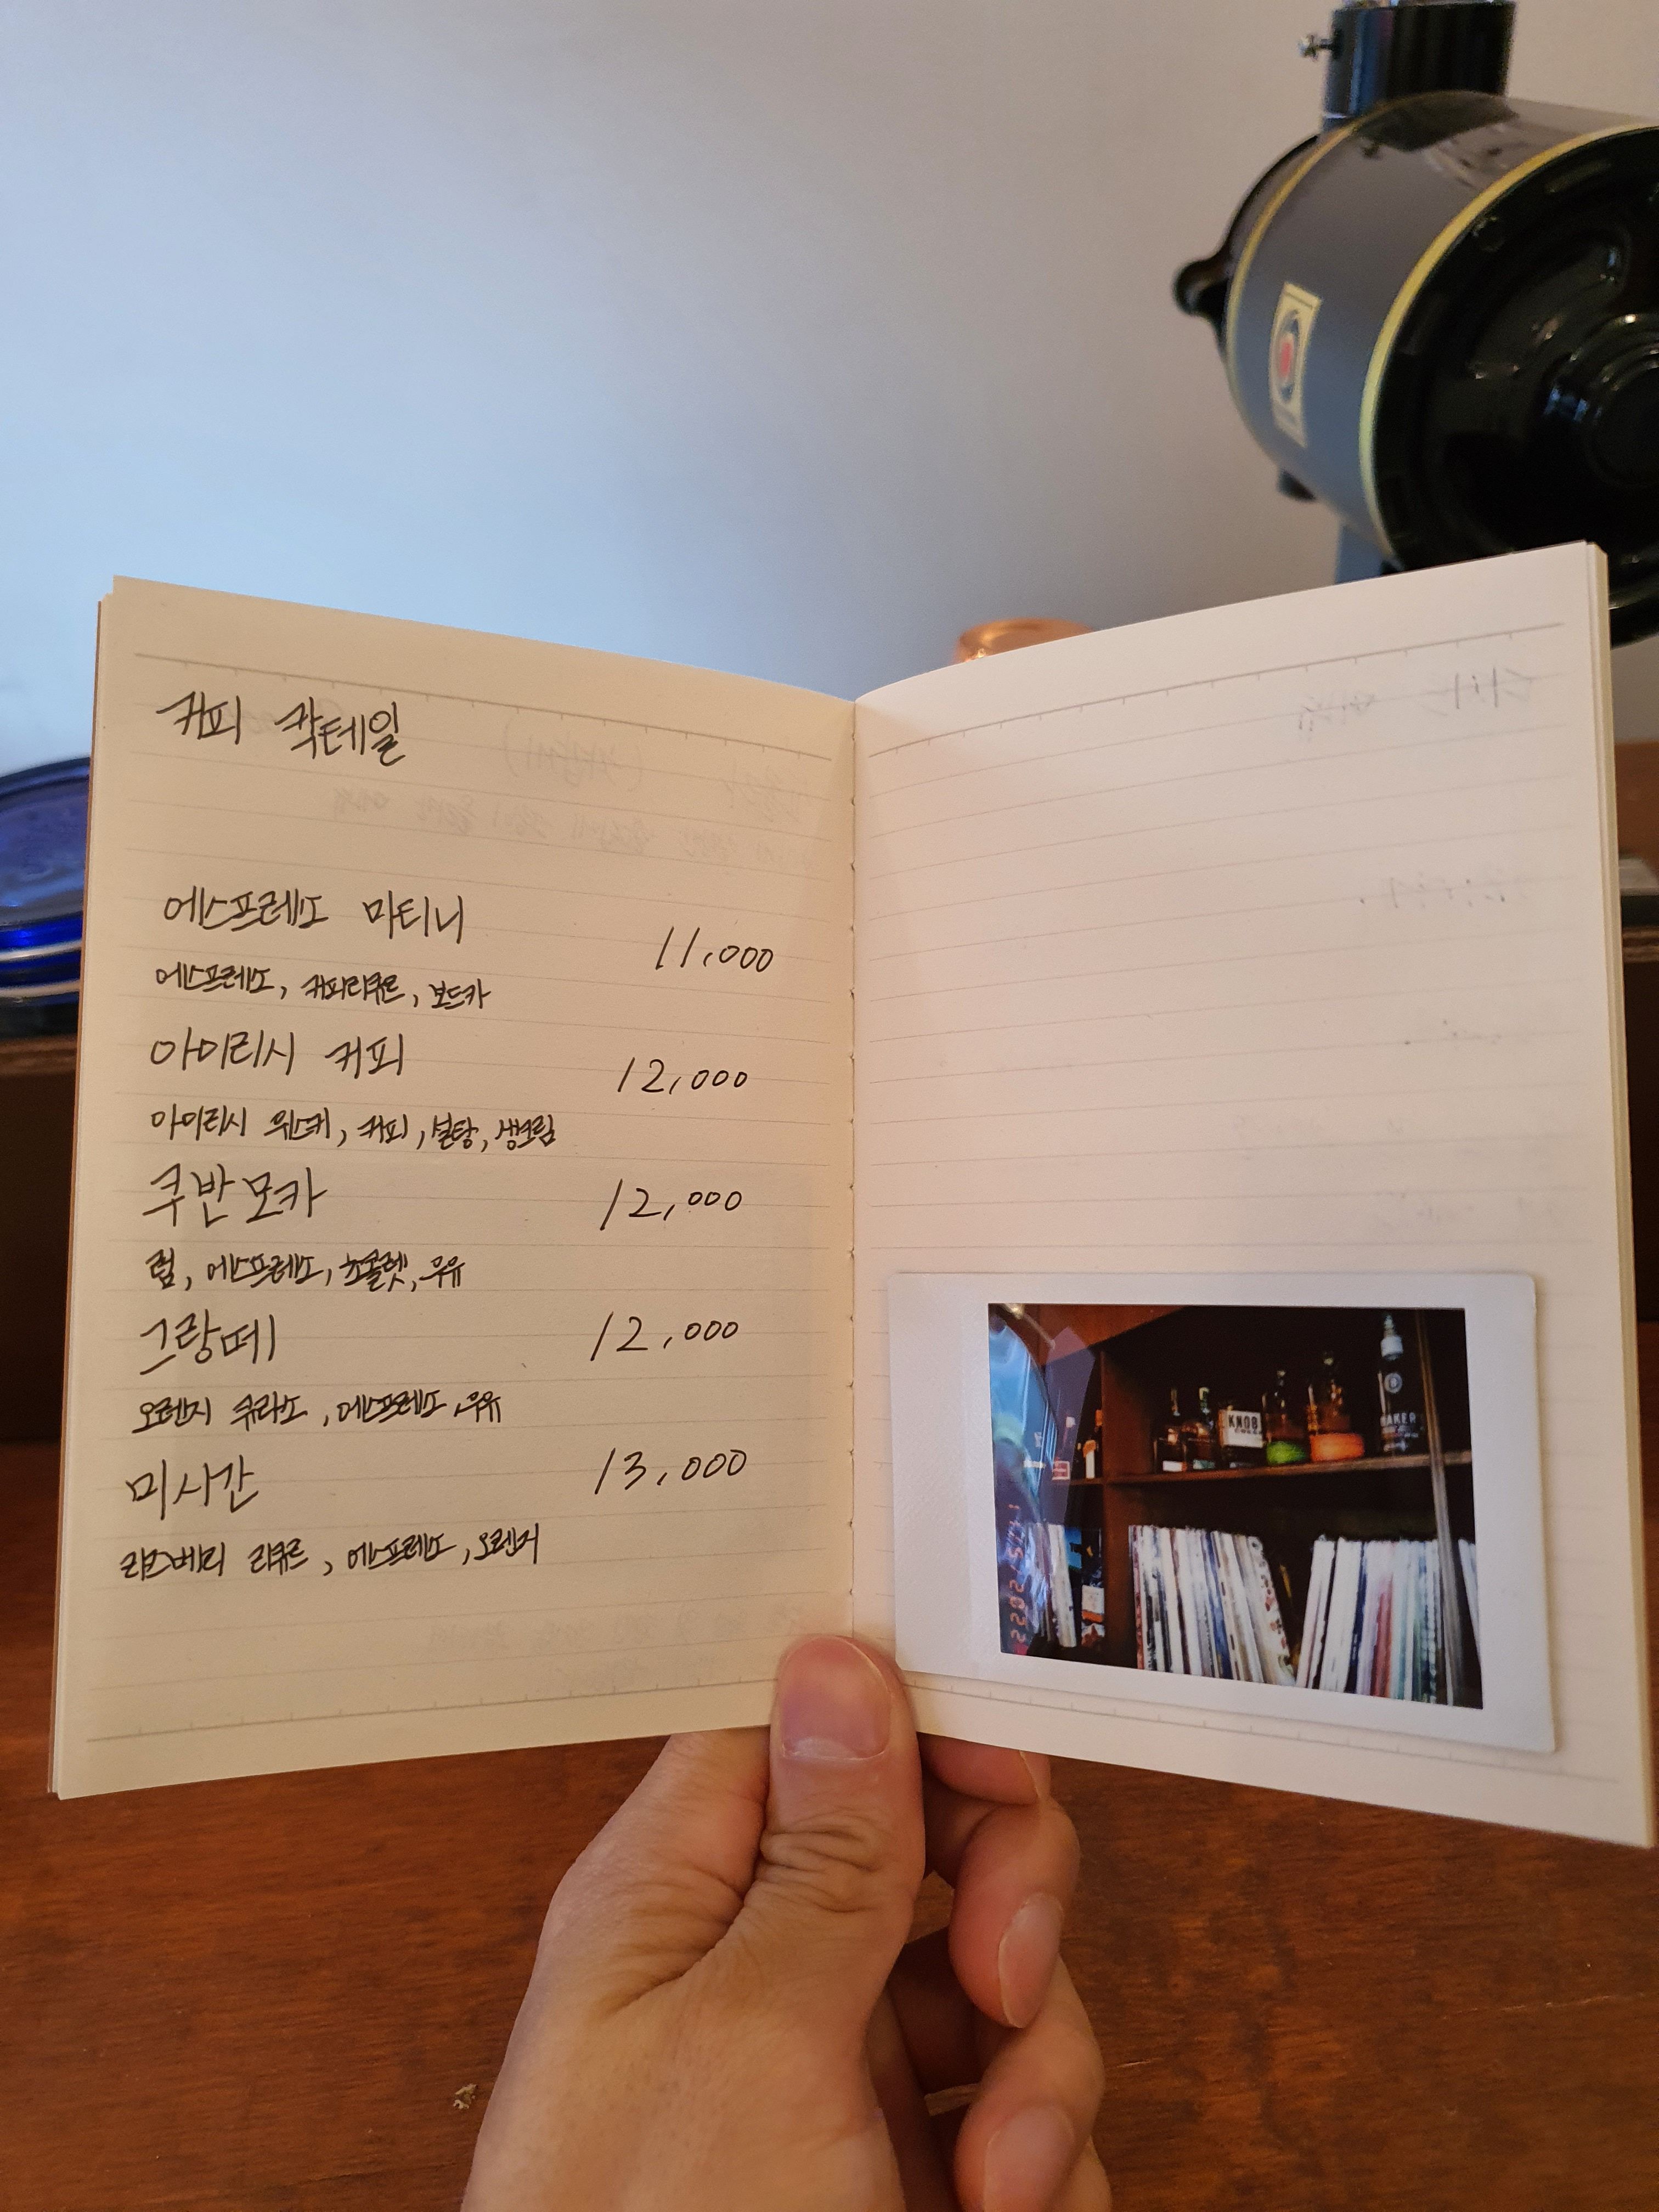 커피 칵테일
에스프레소 마티니 11,000
에스프레소, 커피리큐르, 보드카
아이리시 커피 12,000
아이리시 위스키, 커피, 설탕, 생크림
쿠반모카 12,000
럼, 에스프레소, 초콜렛, 우유
그랑떼 12,000
오렌지 큐라소, 에스프레소, 우유
미시간 13,000
라즈베리 리큐르, 에스프레소, 오렌지
KNOB
BAKER